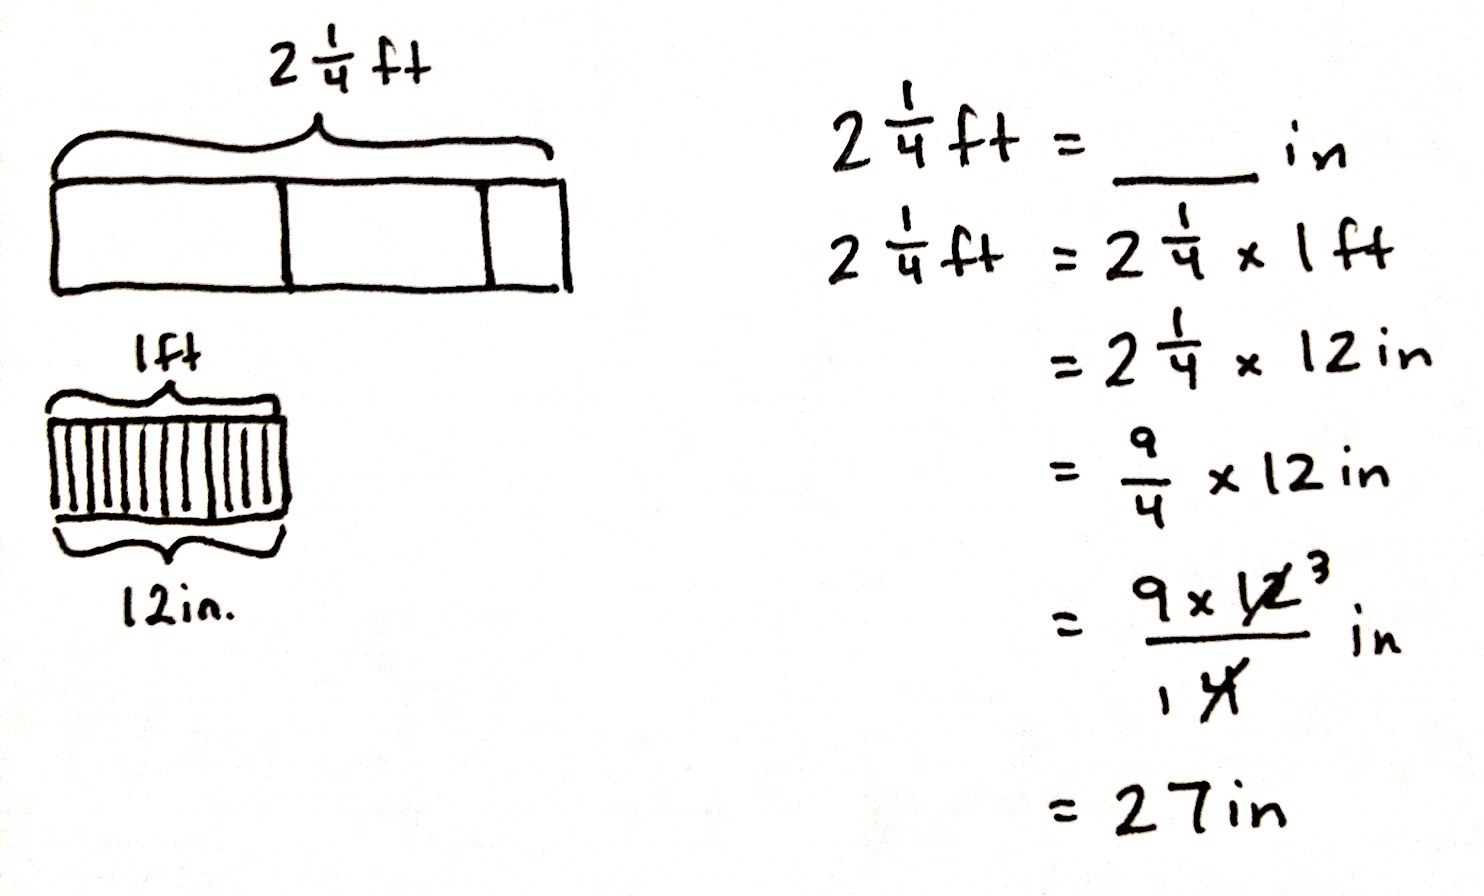 2 1/4 ft
1ft
12in.
2 1/4 ft = ____ in
2 1/4 ft = 2 1/4 x 1ft
= 2 1/4 x 12in
= 9/4 x 12in
= 9 x 12 3 / 1 4 in
= 27in